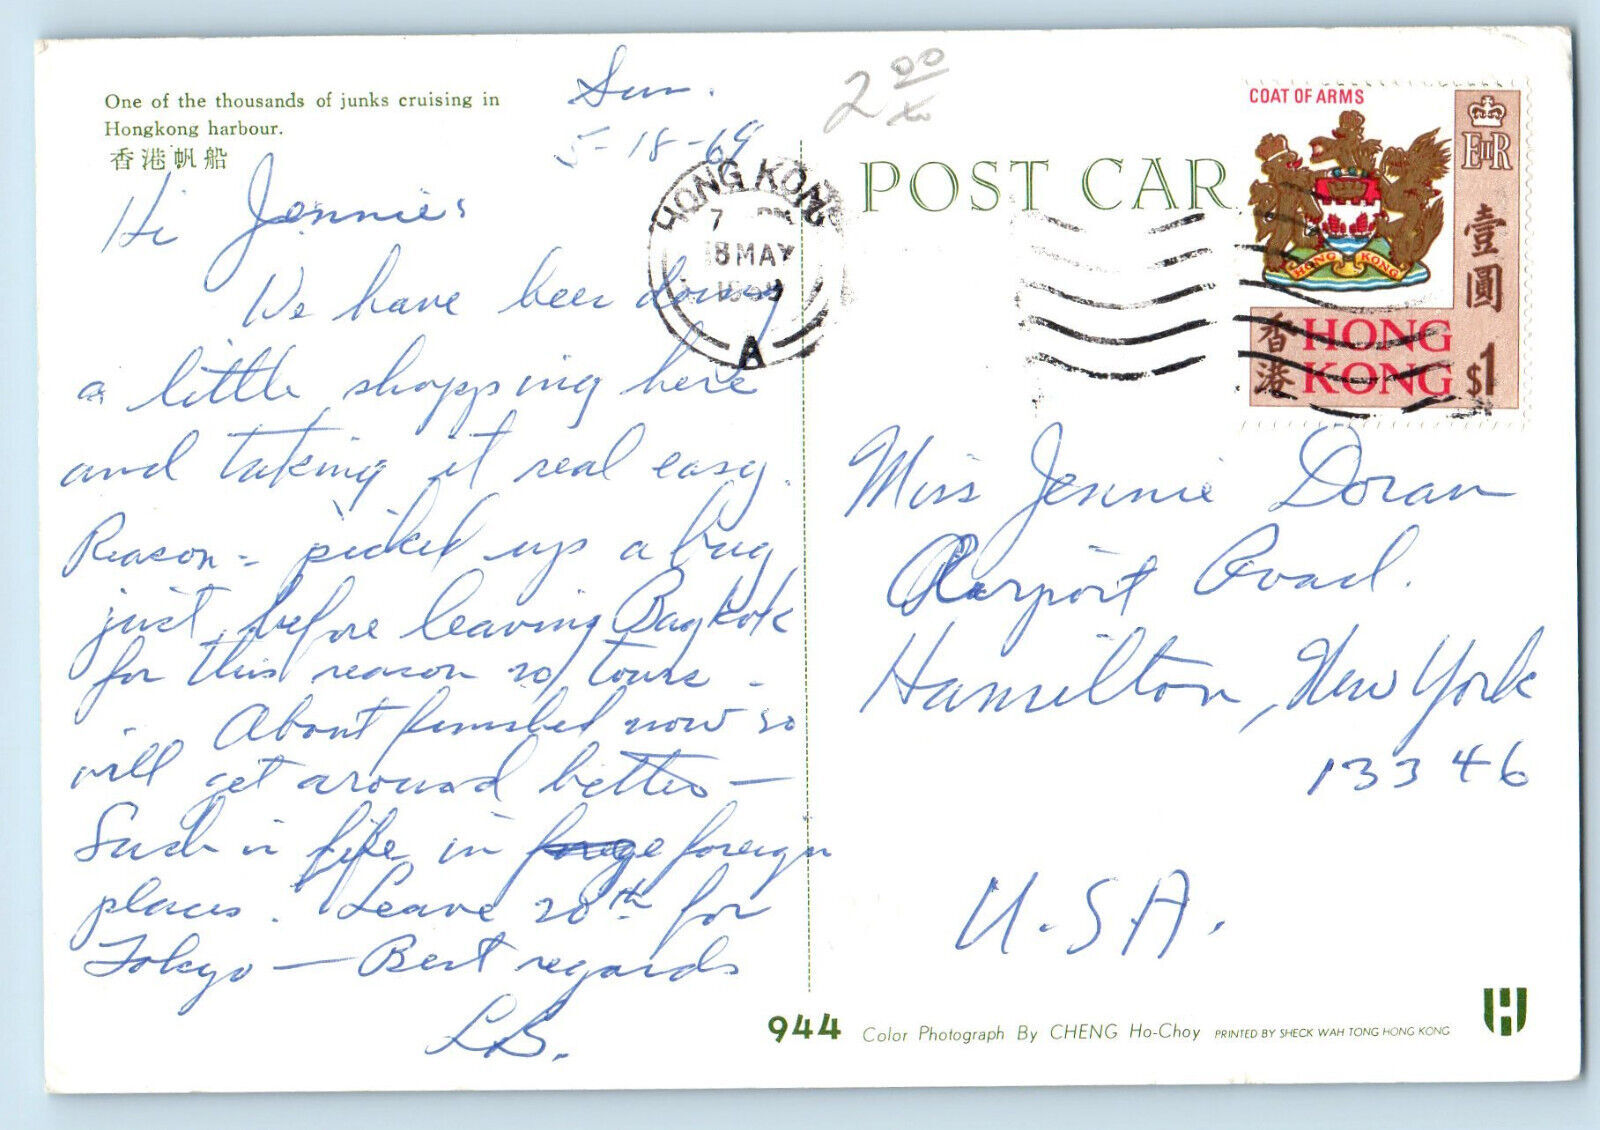 One of the thousands of junks cruising in
Hongkong harbour.
香港帆船
Sun.
5-18-69
2.00
Hi Jennie:
We have been doing
a little shopping here
and taking it real easy.
Reason - picked up a bug
just before leaving Bangkok
for this reason no tours -
About finished now so
will get around better -
Such is life in foreign
places. Leave 20th for
Tokyo - Best regards
LB.
HONG KONG
7 PM
18 MAY
1969
A
POST CAR
COAT OF ARMS
EIIR
壹圓
HONG KONG
香港
HONG
KONG
$1
Miss Jennie Doran
Airport Road.
Hamilton, New York
13346
U.S.A.
944 Color Photograph By CHENG Ho-Choy PRINTED BY SHECK WAH TONG HONG KONG